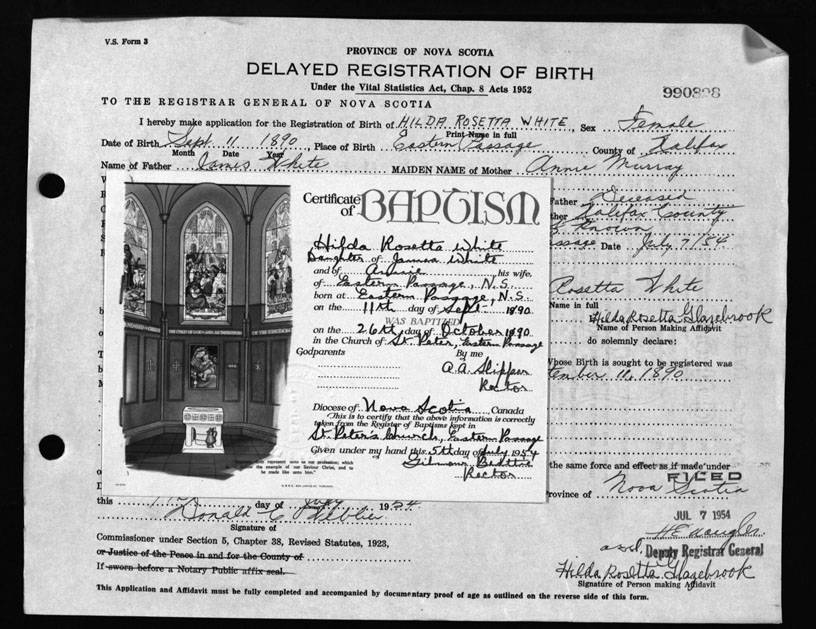 V.S. Form 3
PROVINCE OF NOVA SCOTIA
DELAYED REGISTRATION OF BIRTH
Under the Vital Statistics Act, Chap. 8 Acts 1952
TO THE REGISTRAR GENERAL OF NOVA SCOTIA
I hereby make application for the Registration of Birth of HILDA ROSETTA WHITE, Sex Female
Print Name in full
Date of Birth Sept. 11 1890, Place of Birth Eastern Passage, County of Halifax
Month Date Year
Name of Father James White MAIDEN NAME of Mother Annie Murray
Father Deceased
Halifax County
Known
Date July 7/54
Certificate
of BAPTISM
Hilda Rosetta White
Daughter of James White
and of Annie, his wife,
of Eastern Passage, N.S.
born at Eastern Passage, N.S.
on the 11th day of Sept. 1890
WAS BAPTIZED
on the 26th day of October 1890
in the Church of St. Peter, Eastern Passage
Godparents By me
A.A. Skipper
Rector
Diocese of Nova Scotia, Canada
This is to certify that the above information is correctly
taken from the Register of Baptisms kept in
St. Peter's Church, Eastern Passage
Given under my hand this 5th day of July 1954
Rector
represent unto us our profession; which
the example of our Saviour Christ, and to
be made like unto him.
Rosetta White
Name in full
Hilda Rosetta Glazebrook
Name of Person Making Affidavit
do solemnly declare:
Whose Birth is sought to be registered was
tember 11, 1890
the same force and effect as if made under
FILED
Province of Nova Scotia
this day of July 1954
JUL 7 1954
Donald C.
Signature of
Commissioner under Section 5, Chapter 38, Revised Statutes, 1923,
or Justice of the Peace in and for the County of
If sworn before a Notary Public affix seal.
Deputy Registrar General
Hilda Rosetta Glazebrook
Signature of Person making Affidavit
This Application and Affidavit must be fully completed and accompanied by documentary proof of age as outlined on the reverse side of this form.